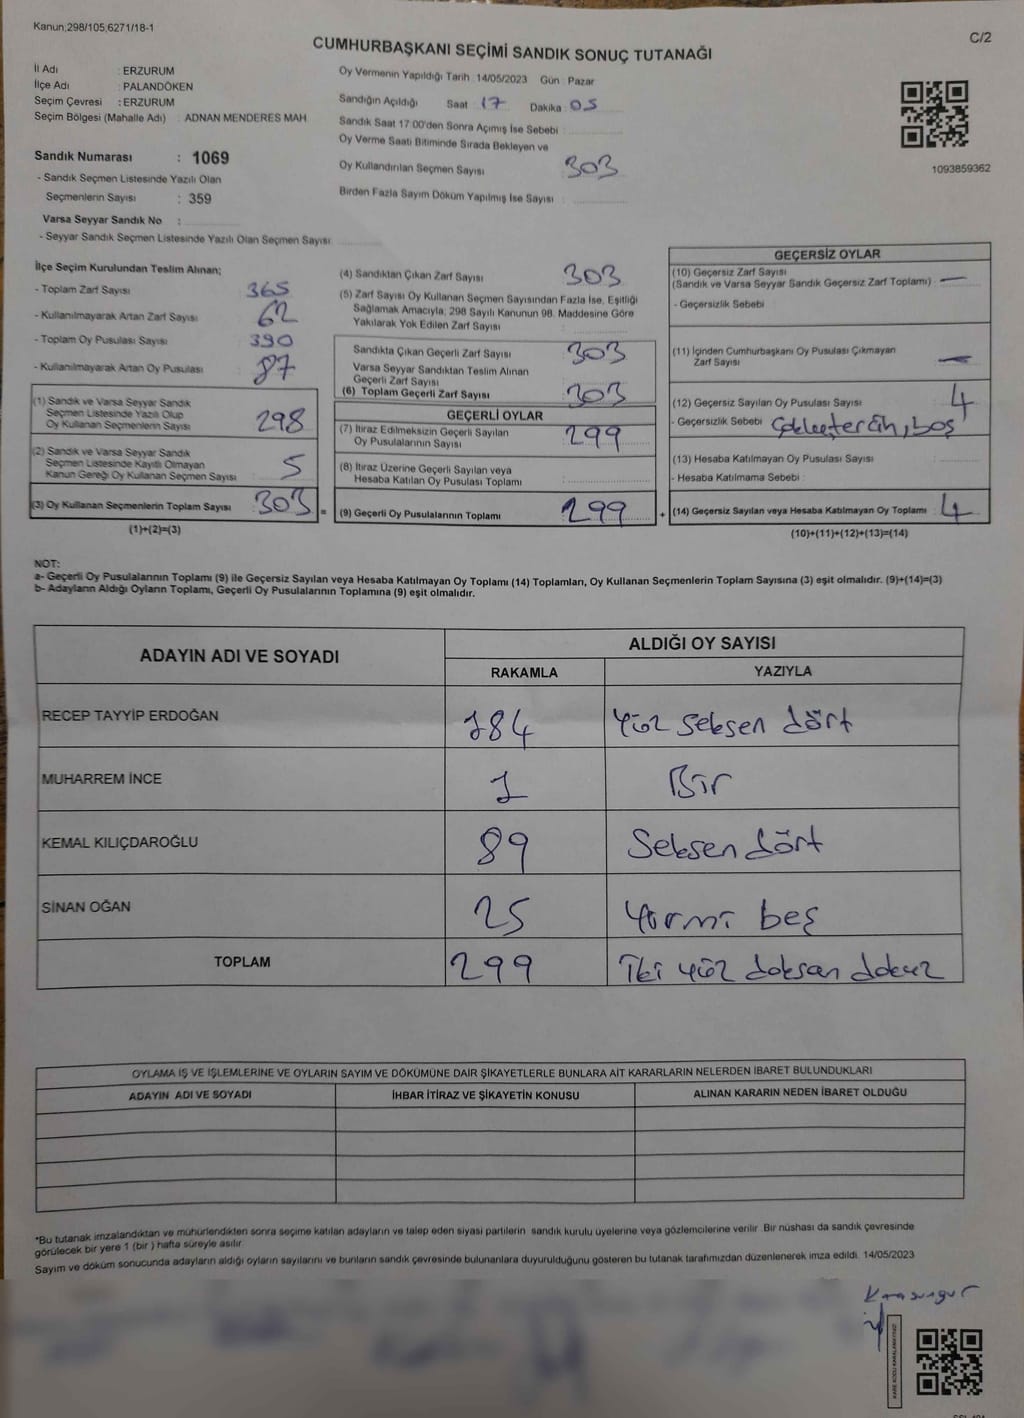 Kanun;298/105;6271/18-1
C/2
CUMHURBAŞKANI SEÇİMİ SANDIK SONUÇ TUTANAĞI
İl Adı : ERZURUM
İlçe Adı : PALANDÖKEN
Seçim Çevresi : ERZURUM
Seçim Bölgesi (Mahalle Adı) : ADNAN MENDERES MAH.
Sandık Numarası : 1069
- Sandık Seçmen Listesinde Yazılı Olan
Seçmenlerin Sayısı : 359
Varsa Seyyar Sandık No :
- Seyyar Sandık Seçmen Listesinde Yazılı Olan Seçmen Sayısı:
Oy Vermenin Yapıldığı Tarih : 14/05/2023 Gün : Pazar
Sandığın Açıldığı Saat : 17 Dakika : 05
Sandık Saat 17:00'den Sonra Açımış İse Sebebi :
Oy Verme Saati Bitiminde Sırada Bekleyen ve
Oy Kullandırılan Seçmen Sayısı : 303
Birden Fazla Sayım Döküm Yapılmış İse Sayısı :
1093859362
İlçe Seçim Kurulundan Teslim Alınan;
- Toplam Zarf Sayısı : 365
- Kullanılmayarak Artan Zarf Sayısı : 62
- Toplam Oy Pusulası Sayısı : 390
- Kullanılmayarak Artan Oy Pusulası : 87
(1) Sandık ve Varsa Seyyar Sandık
Seçmen Listesinde Yazılı Olup
Oy Kullanan Seçmenlerin Sayısı : 298
(2) Sandık ve Varsa Seyyar Sandık
Seçmen Listesinde Kayıtlı Olmayan
Kanun Gereği Oy Kullanan Seçmen Sayısı : 5
(3) Oy Kullanan Seçmenlerin Toplam Sayısı : 303 =
(1)+(2)=(3)
(4) Sandıktan Çıkan Zarf Sayısı : 303
(5) Zarf Sayısı Oy Kullanan Seçmen Sayısından Fazla İse, Eşitliği
Sağlamak Amacıyla; 298 Sayılı Kanunun 98. Maddesine Göre
Yakılarak Yok Edilen Zarf Sayısı :
Sandıkta Çıkan Geçerli Zarf Sayısı : 303
Varsa Seyyar Sandıktan Teslim Alınan
Geçerli Zarf Sayısı :
(6) Toplam Geçerli Zarf Sayısı : 303
GEÇERLİ OYLAR
(7) İtiraz Edilmeksizin Geçerli Sayılan
Oy Pusulalarının Sayısı : 299
(8) İtiraz Üzerine Geçerli Sayılan veya
Hesaba Katılan Oy Pusulası Toplamı :
(9) Geçerli Oy Pusulalarının Toplamı : 299 +
GEÇERSİZ OYLAR
(10) Geçersiz Zarf Sayısı
(Sandık ve Varsa Seyyar Sandık Geçersiz Zarf Toplamı) : —
- Geçersizlik Sebebi :
(11) İçinden Cumhurbaşkanı Oy Pusulası Çıkmayan
Zarf Sayısı : —
(12) Geçersiz Sayılan Oy Pusulası Sayısı : 4
- Geçersizlik Sebebi : boş
(13) Hesaba Katılmayan Oy Pusulası Sayısı :
- Hesaba Katılmama Sebebi :
(14) Geçersiz Sayılan veya Hesaba Katılmayan Oy Toplamı : 4
(10)+(11)+(12)+(13)=(14)
NOT:
a- Geçerli Oy Pusulalarının Toplamı (9) ile Geçersiz Sayılan veya Hesaba Katılmayan Oy Toplamı (14) Toplamları, Oy Kullanan Seçmenlerin Toplam Sayısına (3) eşit olmalıdır. (9)+(14)=(3)
b- Adayların Aldığı Oyların Toplamı, Geçerli Oy Pusulalarının Toplamına (9) eşit olmalıdır.
ADAYIN ADI VE SOYADI
ALDIĞI OY SAYISI
RAKAMLA YAZIYLA
RECEP TAYYİP ERDOĞAN 184 Yüz seksen dört
MUHARREM İNCE 1 Bir
KEMAL KILIÇDAROĞLU 89 Seksen dört
SİNAN OĞAN 25 Yirmi beş
TOPLAM 299 İki yüz doksan dokuz
OYLAMA İŞ VE İŞLEMLERİNE VE OYLARIN SAYIM VE DÖKÜMÜNE DAİR ŞİKAYETLERLE BUNLARA AİT KARARLARIN NELERDEN İBARET BULUNDUKLARI
ADAYIN ADI VE SOYADI İHBAR İTİRAZ VE ŞİKAYETİN KONUSU ALINAN KARARIN NEDEN İBARET OLDUĞU
*Bu tutanak imzalandıktan ve mühürlendikten sonra seçime katılan adayların ve talep eden siyasi partilerin sandık kurulu üyelerine veya gözlemcilerine verilir. Bir nüshası da sandık çevresinde
görülecek bir yere 1 (bir ) hafta süreyle asılır.
Sayım ve döküm sonucunda adayların aldığı oyların sayılarını ve bunların sandık çevresinde bulunanlara duyurulduğunu gösteren bu tutanak tarafımızdan düzenlenerek imza edildi. 14/05/2023
KARE KODU KARALAMAYINIZ